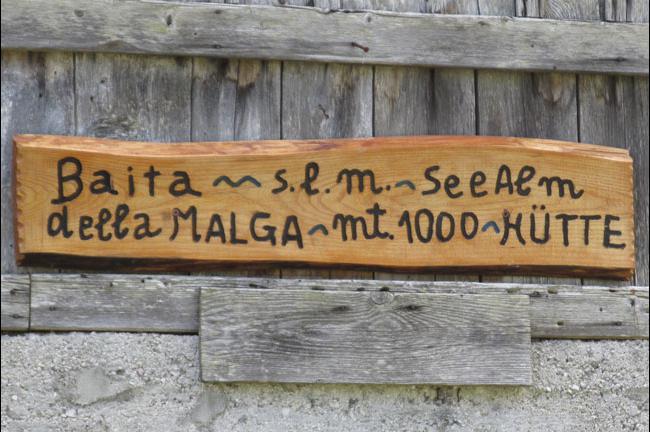 Baita ~ s.l.m. ~ SeeAlm
della MALGA ~ mt. 1000 ~ HÜTTE